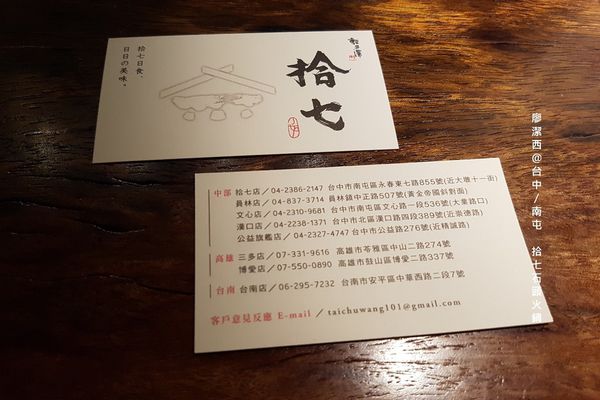 拾七
拾七日食、
日日の美味。
中部 拾七店／04-2386-2147 台中市南屯區永春東七路855號(近大墩十一街)
員林店／04-837-3714 員林鎮中正路507號(黃金帝國斜對面)
文心店／04-2310-9681 台中市南屯區文心路一段536號(大業路口)
漢口店／04-2238-1371 台中市北區漢口路四段389號(近崇德路)
公益旗艦店／04-2327-4747 台中市公益路276號(近精誠路)
高雄 三多店／07-331-9616 高雄市苓雅區中山二路274號
博愛店／07-550-0890 高雄市鼓山區博愛二路337號
台南 台南店／06-295-7232 台南市安平區中華西路二段7號
客戶意見反應 E-mail／taichuwang101@gmail.com
廖潔西@台中/南屯 拾七石頭火鍋